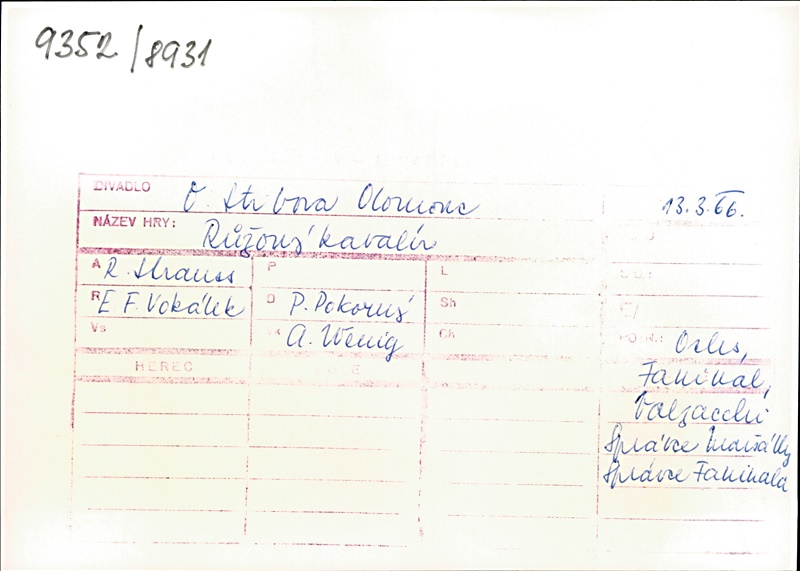 9352/8931
DIVADLO O. Stibora Olomouc 13.3.66.
NÁZEV HRY: Růžový kavalír
A R. Strauss P L
R E F. Vokálek D P. Pokorný Sh
Vs A. Wenig Ch
Ochs,
HEREC
Faninal,
Valzacchi
Správce Maršálky
Správce Faninala